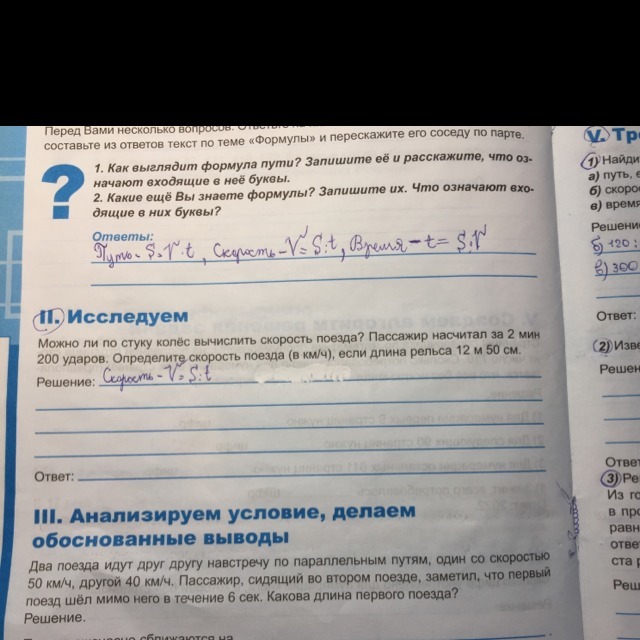 Перед Вами несколько вопросов. Ответьте
составьте из ответов текст по теме «Формулы» и перескажите его соседу по парте.
?
1. Как выглядит формула пути? Запишите её и расскажите, что оз-
начают входящие в неё буквы.
2. Какие ещё Вы знаете формулы? Запишите их. Что означают вхо-
дящие в них буквы?
Ответы:
Путь - S=V·t, Скорость - V=S:t, Время - t=S:V
II. Исследуем
Можно ли по стуку колёс вычислить скорость поезда? Пассажир насчитал за 2 мин
200 ударов. Определите скорость поезда (в км/ч), если длина рельса 12 м 50 см.
Решение: Скорость - V=S:t
Ответ:
III. Анализируем условие, делаем
обоснованные выводы
Два поезда идут друг другу навстречу по параллельным путям, один со скоростью
50 км/ч, другой 40 км/ч. Пассажир, сидящий во втором поезде, заметил, что первый
поезд шёл мимо него в течение 6 сек. Какова длина первого поезда?
Решение.
V. Тр
1) Найди
а) путь, е
б) скоро
в) время
Решени
б) 120:
в) 300
Ответ:
2) Изве
Решен
Ответ
3) Ре
Из го
в про
равн
отве
ста р
Реш